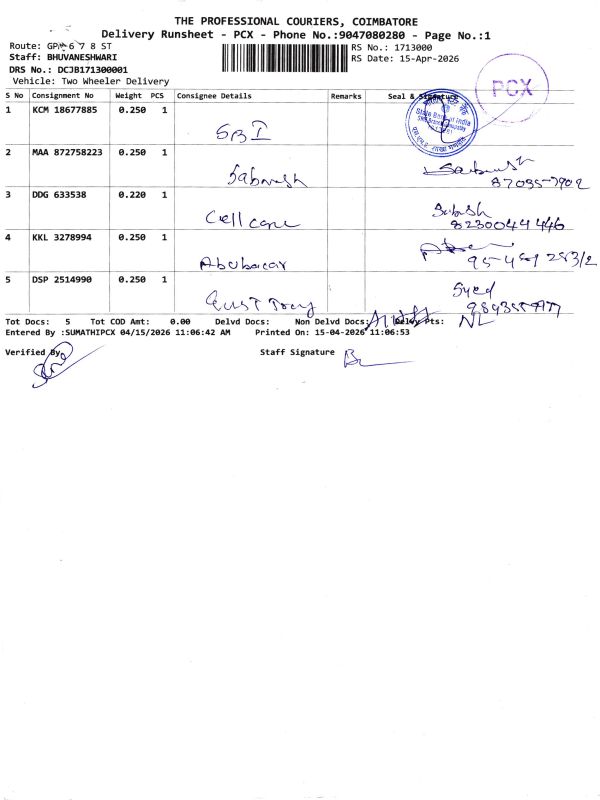 THE PROFESSIONAL COURIERS, COIMBATORE
Delivery Runsheet - PCX - Phone No.:9047080280 - Page No.:1
Route: GP 6 7 8 ST
RS No.: 1713000
Staff: BHUVANESHWARI
RS Date: 15-Apr-2026
DRS No.: DCJB171300001
Vehicle: Two Wheeler Delivery
PCX
S No Consignment No Weight PCS Consignee Details Remarks Seal & Signature
State Bank of India
1 KCM 18677885 0.250 1 SBI
2 MAA 872758223 0.250 1
3 DDG 633538 0.220 1 Cell care
8230044446
4 KKL 3278994 0.250 1 Abubacar
5 DSP 2514990 0.250 1
Syed
Tot Docs: 5 Tot COD Amt: 0.00 Delvd Docs: Non Delvd Docs: Delvy Pts: NL
Entered By :SUMATHIPCX 04/15/2026 11:06:42 AM Printed On: 15-04-2026 11:06:53
Verified By
Staff Signature